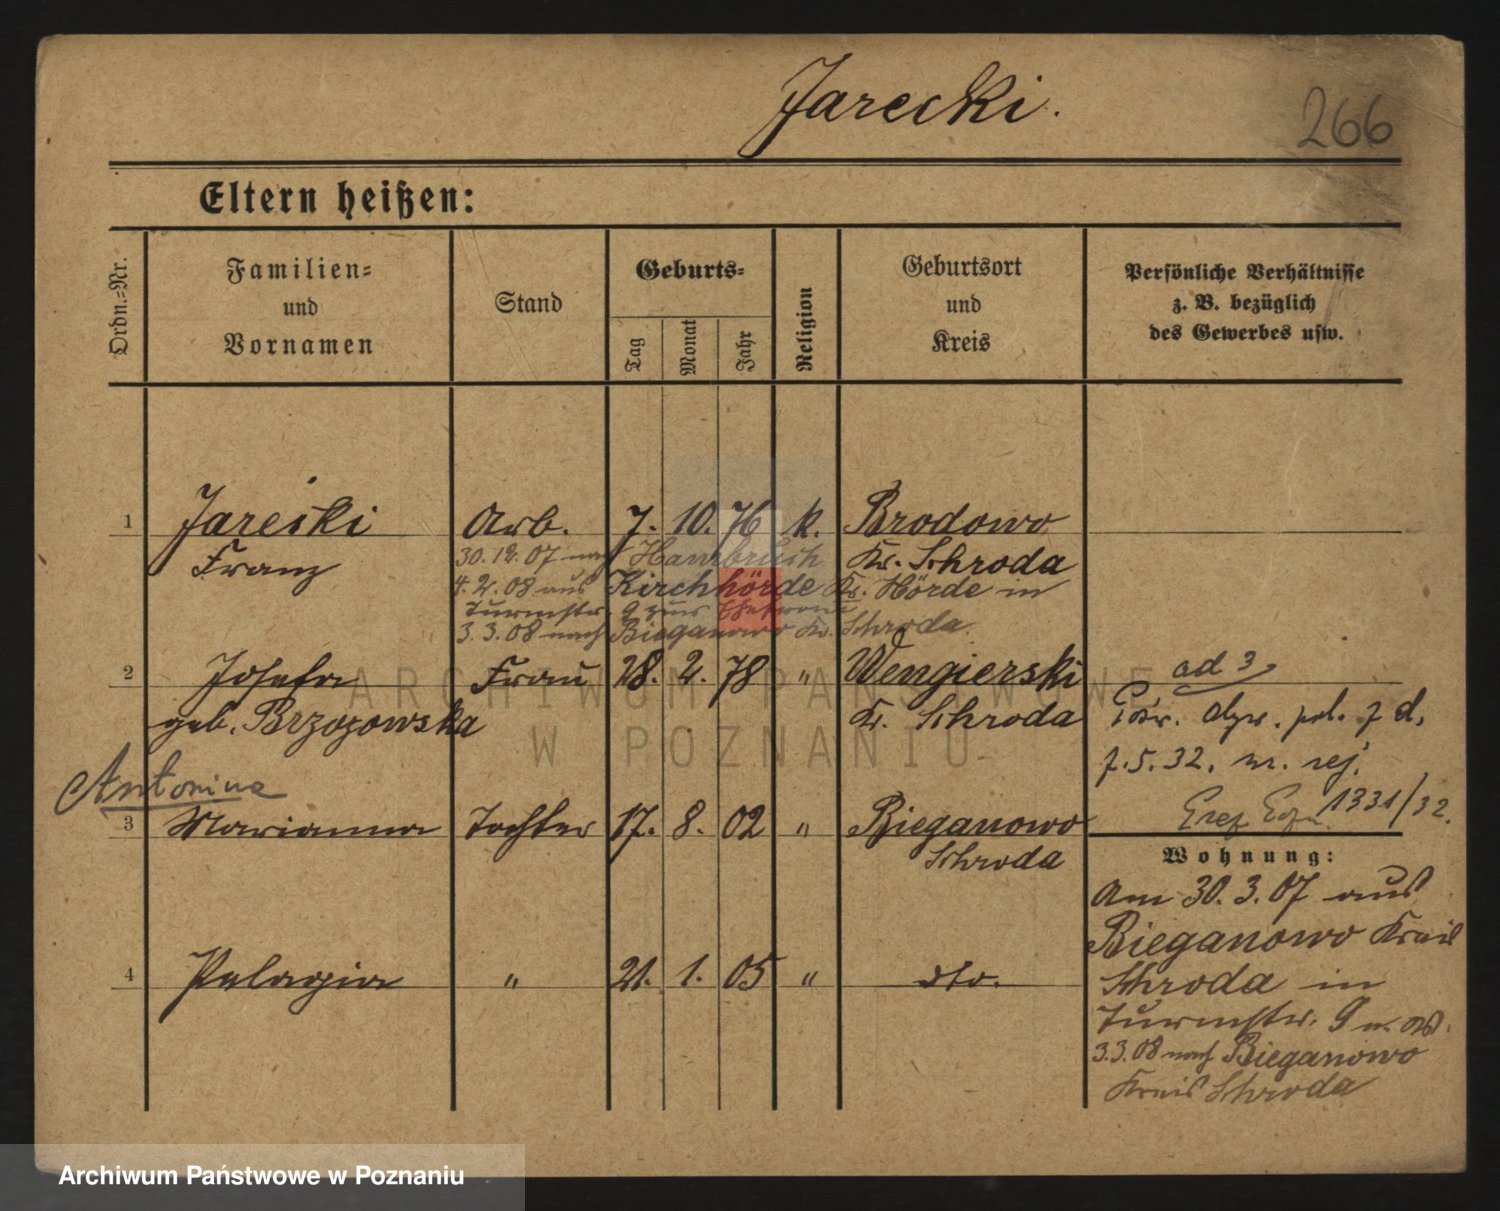 Jarecki.
266
Eltern heißen:
Ordn.=Nr.
Familien=
und
Vornamen
Stand
Geburts=
Tag
Monat
Jahr
Religion
Geburtsort
und
Kreis
Persönliche Verhältnisse
z. B. bezüglich
des Gewerbes usw.
1 Jarecki Arb. 7. 10. 76 k. Brodowo
Franz Kr. Schroda
30.12.07 nach Hambruch
4.2.08 aus Kirchhörde Kr. Hörde in
Turmstr. 9 zur Ehefrau
3.3.08 nach Bieganowo Kr. Schroda.
2 Josefa Frau 28. 2. 78 " Wengierski
geb. Brzozowska Kr. Schroda
ad 3
Pośw. obyw. pol. z d.
7.5.32. nr. rej.
1331/32.
Antonina
3 Marianna Tochter 17. 8. 02 " Bieganowo
Schroda
4 Pelagia " 21. 1. 05 " dto.
Wohnung:
Am 30.3.07 aus
Bieganowo Kreis
Schroda in
Turmstr. 9
3.3.08 nach Bieganowo
Kreis Schroda
ARCHIWUM PAŃSTWOWE
W POZNANIU
Archiwum Państwowe w Poznaniu